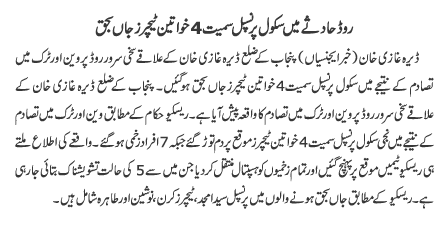 روڈ حادثے میں سکول پرنسپل سمیت 4 خواتین ٹیچرز جاں بحق
ڈیرہ غازی خان (خبر ایجنسیاں) پنجاب کے ضلع ڈیرہ غازی خان کے علاقے سخی سرور روڈ پر وین اور ٹرک میں
تصادم کے نتیجے میں سکول پرنسپل سمیت 4 خواتین ٹیچرز جاں بحق ہوگئیں۔ پنجاب کے ضلع ڈیرہ غازی خان کے
علاقے سخی سرور روڈ پر وین اور ٹرک میں تصادم کا واقعہ پیش آیا ہے۔ ریسکیو حکام کے مطابق وین اور ٹرک میں تصادم
کے نتیجے میں نجی سکول پرنسپل سمیت 4 خواتین ٹیچرز موقع پر دم توڑ گئے جبکہ 7 افراد زخمی ہو گئے۔ واقعے کی اطلاع ملتے
ہی ریسکیو ٹیمیں موقع پر پہنچ گئیں اور تمام زخمیوں کو ہسپتال منتقل کر دیا جن میں سے 5 کی حالت تشویشناک بتائی جا رہی
ہے۔ ریسکیو کے مطابق جاں بحق ہونے والوں میں پرنسپل سیدا مجد، ٹیچرز کرن، نوشین اور طاہرہ شامل ہیں۔